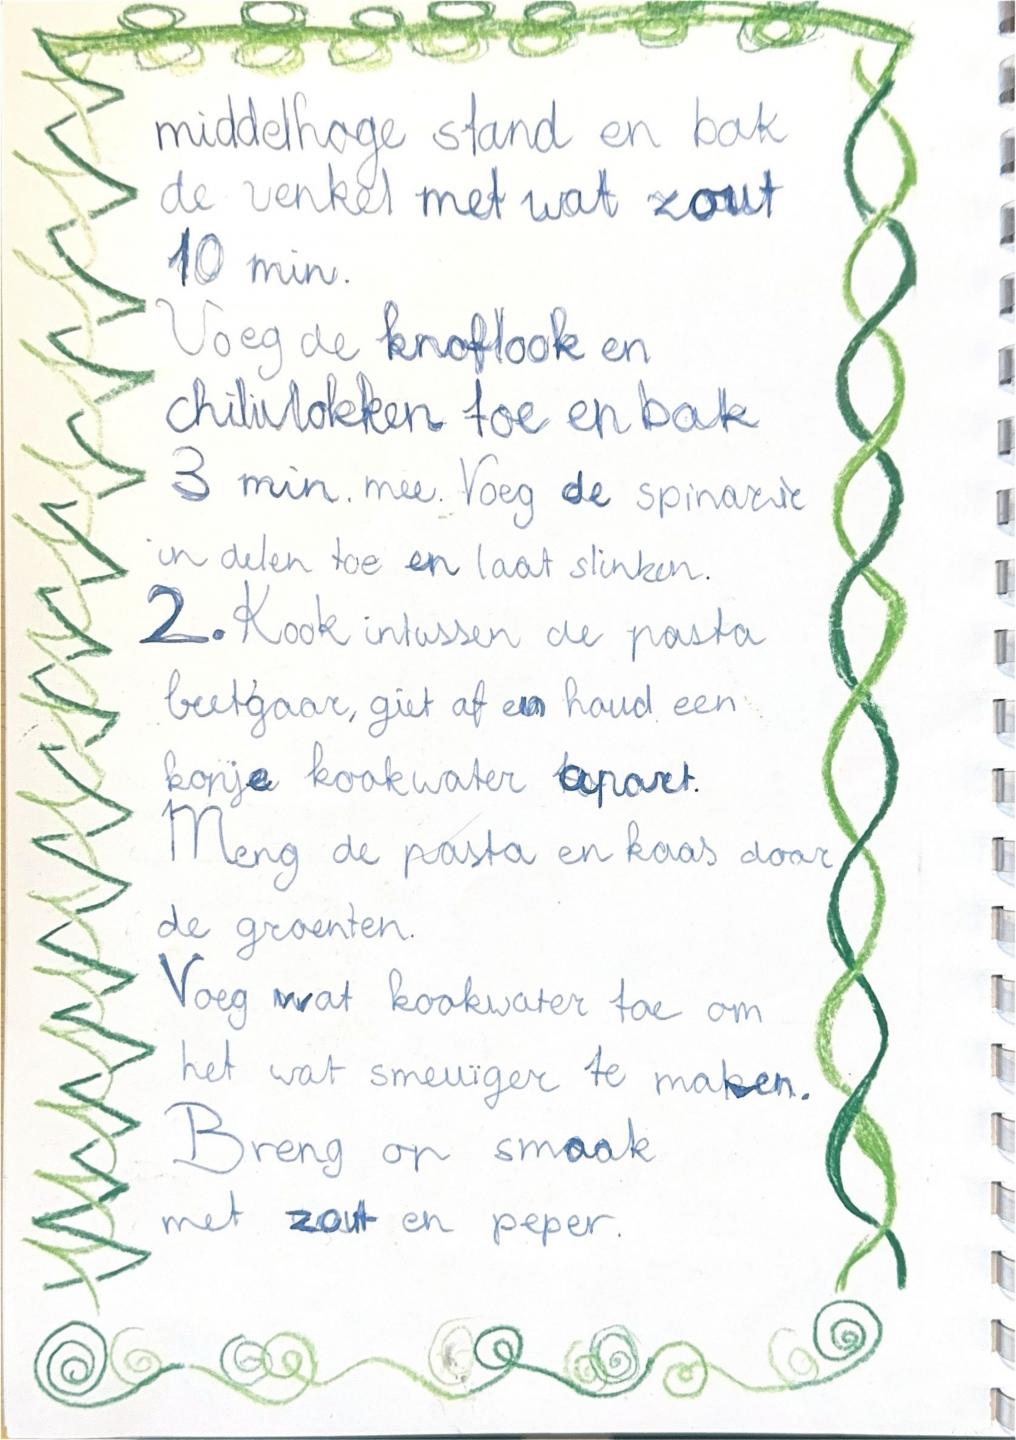 middelhoge stand en bak
de venkel met wat zout
10 min.
Voeg de knoflook en
chilivlokken toe en bak
3 min. mee. Voeg de spinazie
in delen toe en laat slinken.
2. Kook intussen de pasta
beetgaar, giet af en houd een
kopje kookwater apart.
Meng de pasta en kaas door
de groenten.
Voeg wat kookwater toe om
het wat smeuïger te maken.
Breng op smaak
met zout en peper.